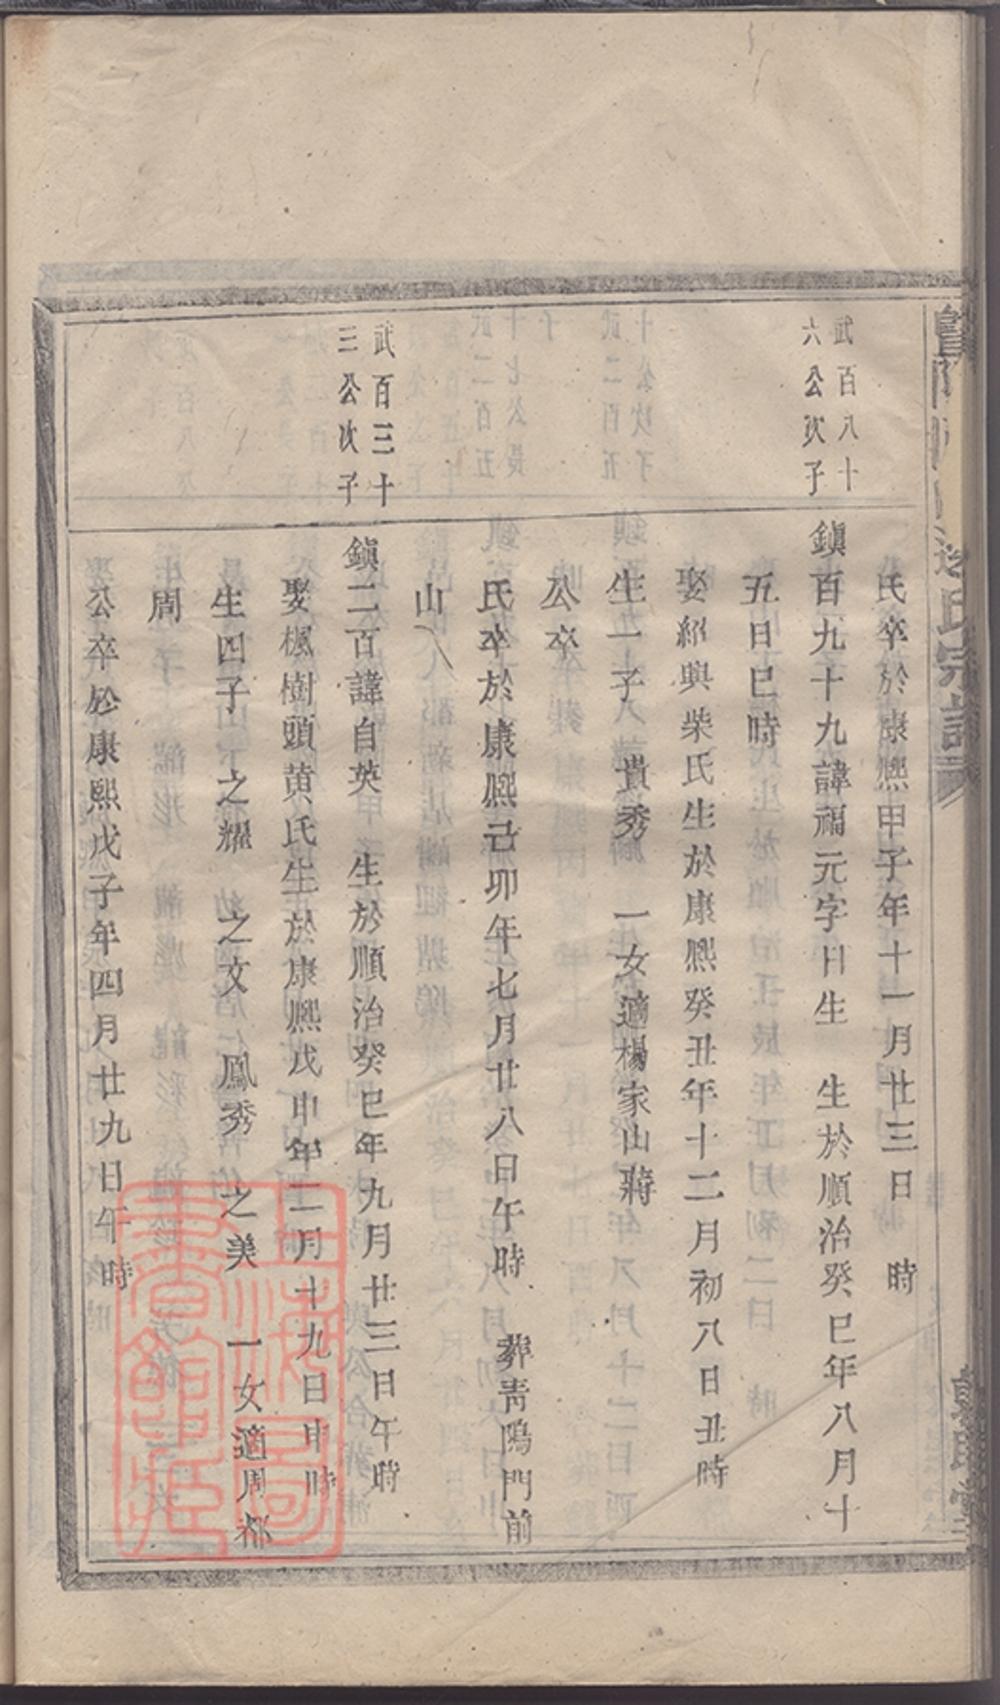 氏宗譜
氏卒於康熙甲子年十一月廿三日 時
武百八十
六公次子
鎭百九十九諱福元字日生 生於順治癸巳年八月十
五日巳時
娶紹興柴氏生於康熙癸丑年十二月初八日丑時
生一子 貴秀 一女適楊家山蔣
公卒
氏卒於康熙己卯年七月廿八日午時 葬靑隝門前
山
武百三十
三公次子
鎭二百諱自英 生於順治癸巳年九月廿三日午時
娶楓樹頭黃氏生於康熙戊申年二月十九日申時
生四子 之耀 之文 鳳秀 之美 一女適周郁
周
公卒於康熙戊子年四月廿九日午時
上海圖書館藏